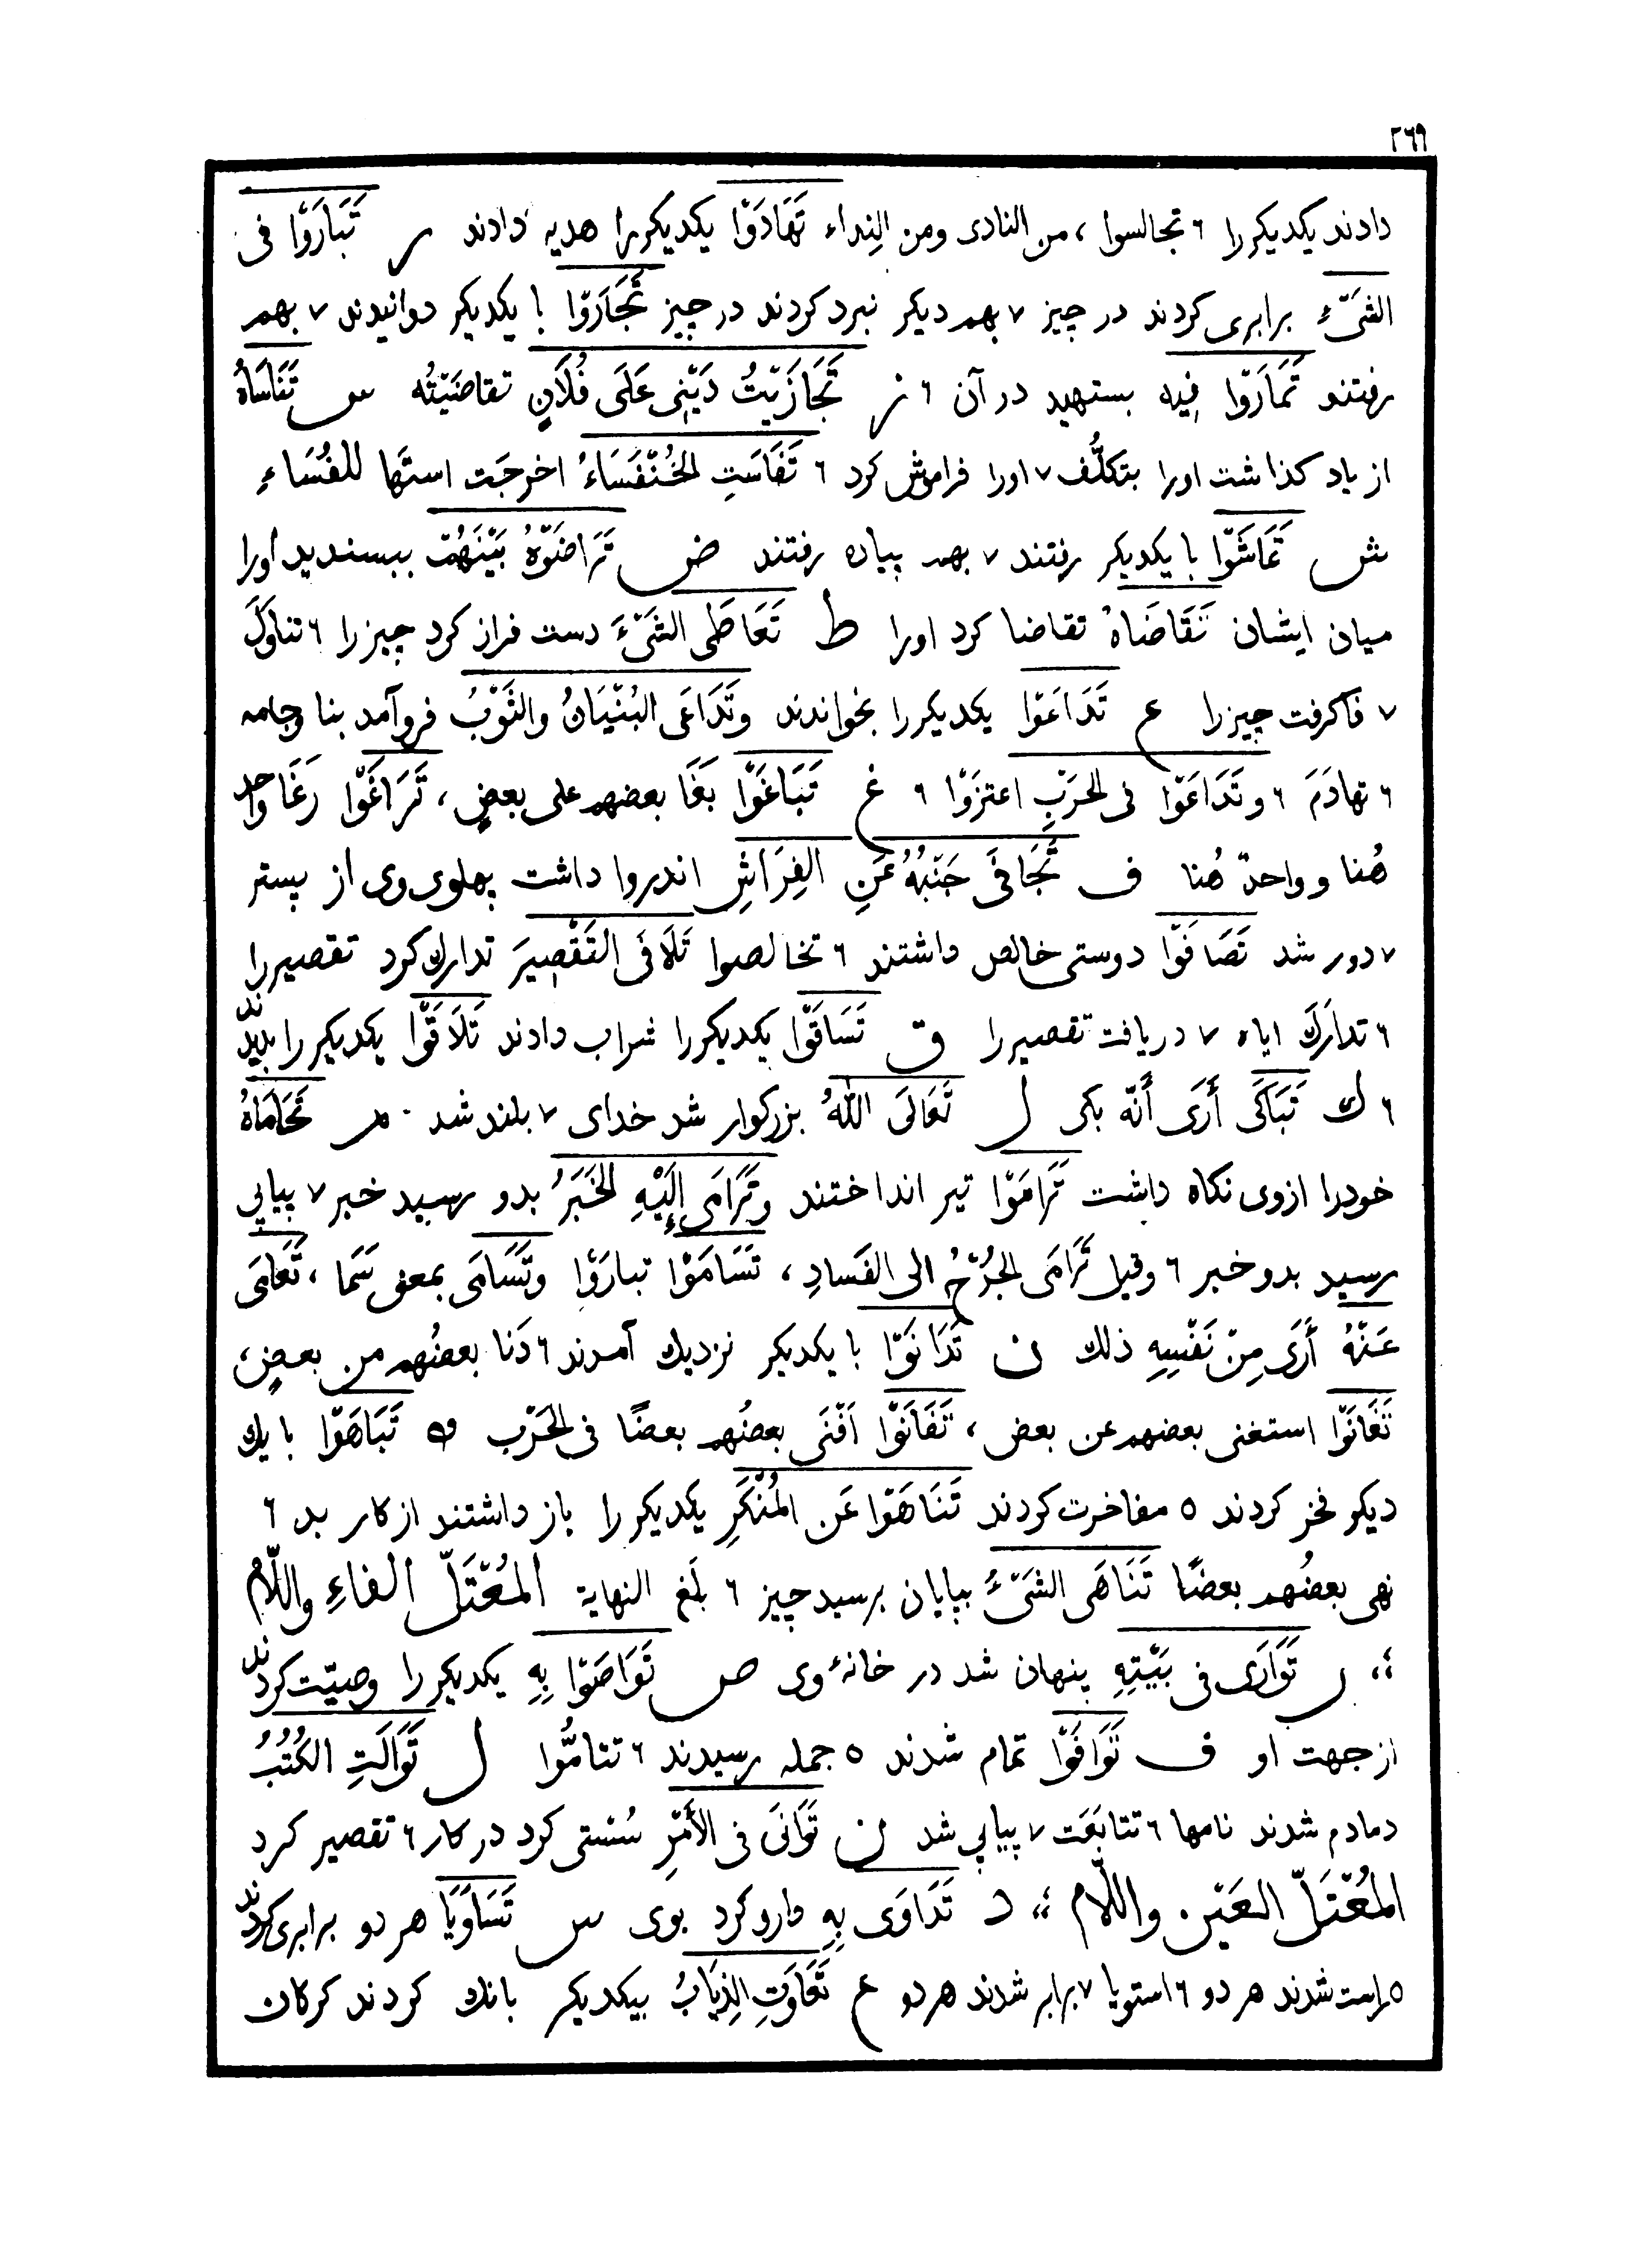 ٢٦٩
دادند یکدیکر را ٦ تجالسوا ، من النادى ومن النِداء تَهَادَوْا یکدیکر را هدیه دادند ر تَبَارَوْا فى
الشَىْءِ برابری کردند در چیز ٧ بهم دیکر نبرد کردند در چیز تَجَارَوْا با یکدیکر دوانیدند ٧ بهم
رفتند تَمَارَوْا فِیه بستهید در آن ٦ ز تَجَازَیْتُ دَیْنِى عَلَى فُلَانٍ تقاضَیْتُه س تَنَاسَاهُ
از یاد کذاشت اورا بتکلُّف ٧ اورا فراموش کرد ٦ تَفَاسَتِ الخُنْفَسَاءُ اخرجَت استَها للفُسَاءِ
ش تَمَاشَوْا با یکدیکر رفتند ٧ بهم پیاده رفتند ض تَرَاضَوْهُ بَیْنَهُمْ ببسندید اورا
میان ایشان تَقَاضَاهُ تقاضا کرد اورا ط تَعَاطَى الشَىْءَ دست فراز کرد چیز را ٦ تناوَلَ
٧ فاکرفت چیز را ع تَدَاعَوْا یکدیکر را بخواندند وتَدَاعَى البُنْیَانُ والثَوْبُ فروآمد بنا وجامه
٦ تهادَمَ ٦ وتَدَاعَوْا فى الحَرْبِ اعتزَوْا ٦ غ تَبَاغَوْا بَغَا بعضهم على بعضٍ ، تَرَاغَوْا رَغَا واحد
هُنا وواحدٌ هُنا ف تَجَافَى جَنْبُهُ عَنِ الفِرَاشِ اندروا داشت پهلوى وى از بستر
٧ دور شد تَصَافَوْا دوستى خالص داشتند ٦ تخالصوا تَلَافَى التَقْصِیرَ تدارك کرد تقصیر را
٦ تدارَكَ ایاه ٧ دریافت تقصیر را ق تَسَاقَوْا یکدیکر را شراب دادند تَلَاقَوْا یکدیکر را بدیدند
٦ ك تَبَاكَى أَرَى أَنَّه بكى ل تَعَالَى اللهُ بزرکوار شد خداى ٧ بلند شد م تَحَامَاهُ
خودرا ازوى نکاه داشت تَرَامَوْا تیر انداختند وتَرَامَى إِلَیْهِ الخَبَرُ بدو رسید خبر ٧ پیاپی
رسید بدو خبر ٦ وقیل تَرَامَى الجُرْحُ الى الفَسادِ ، تَسَامَوْا تبارَوْا وتَسَامَى بمعنى سَمَا ، تَعَامَى
عَنْهُ أَرَى مِنْ نَفْسِهِ ذلك ن تَدَانَوْا با یکدیکر نزدیك آمدند ٦ دَنا بعضُهم من بعضٍ ،
تَغَانَوْا استغنى بعضهم عن بعض ، تَفَانَوْا اَفْنَى بعضُهم بعضًا فى الحَرْب ه تَبَاهَوْا با یك
دیکر فخر کردند ٥ مفاخرت کردند تَنَاهَوْا عَنِ المُنْكَرِ یکدیکر را باز داشتند از کار بد ٦
نهى بعضُهم بعضًا تَنَاهَى الشَىْءُ بپایان برسید چیز ٦ بلَغ النهایة المُعْتَلّ الفاءِ واللّام
،، ر تَوَارَى فى بَیْتِهِ پنهان شد در خانهٔ وى ص تَوَاصَوْا بِهِ یکدیکر را وصیّت کردند
از جهت او ف تَوَافَوْا تمام شدند ٥ جمله رسیدند ٦ تتامُّوا ل تَوَالَتِ الكُتُبُ
دمادم شدند نامها ٦ تتابَعَت ٧ پیاپی شد ن تَوَانَى فى الأَمْرِ سُستى کرد در کار ٦ تقصیر کرد
المُعْتَلّ العَیْن واللّام ،، د تَدَاوَى بِهِ دارو کرد بوى س تَسَاوَیَا هر دو برابری کردند
٥ راست شدند هر دو ٦ استویا ٧ برابر شدند هر دو ع تَعَاوَتِ الذِیَابُ بیکدیکر بانك کردند کرکان